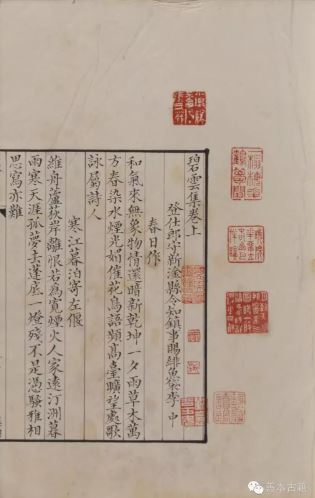 碧雲集卷上
登仕郎守新淦縣令知鎮事賜緋魚袋李中
春日作
和氣來無象物情還暗新乾坤一夕雨草木萬
方春染水煙光媚催花鳥語頻高臺曠望處歌
詠屬詩人
寒江暮泊寄左偃
維舟蘆荻岸離恨若為寬煙火人家遠汀洲暮
雨寒天涯孤夢去蓬底一燈殘不是憑騷雅相
思寫亦難
善本古籍